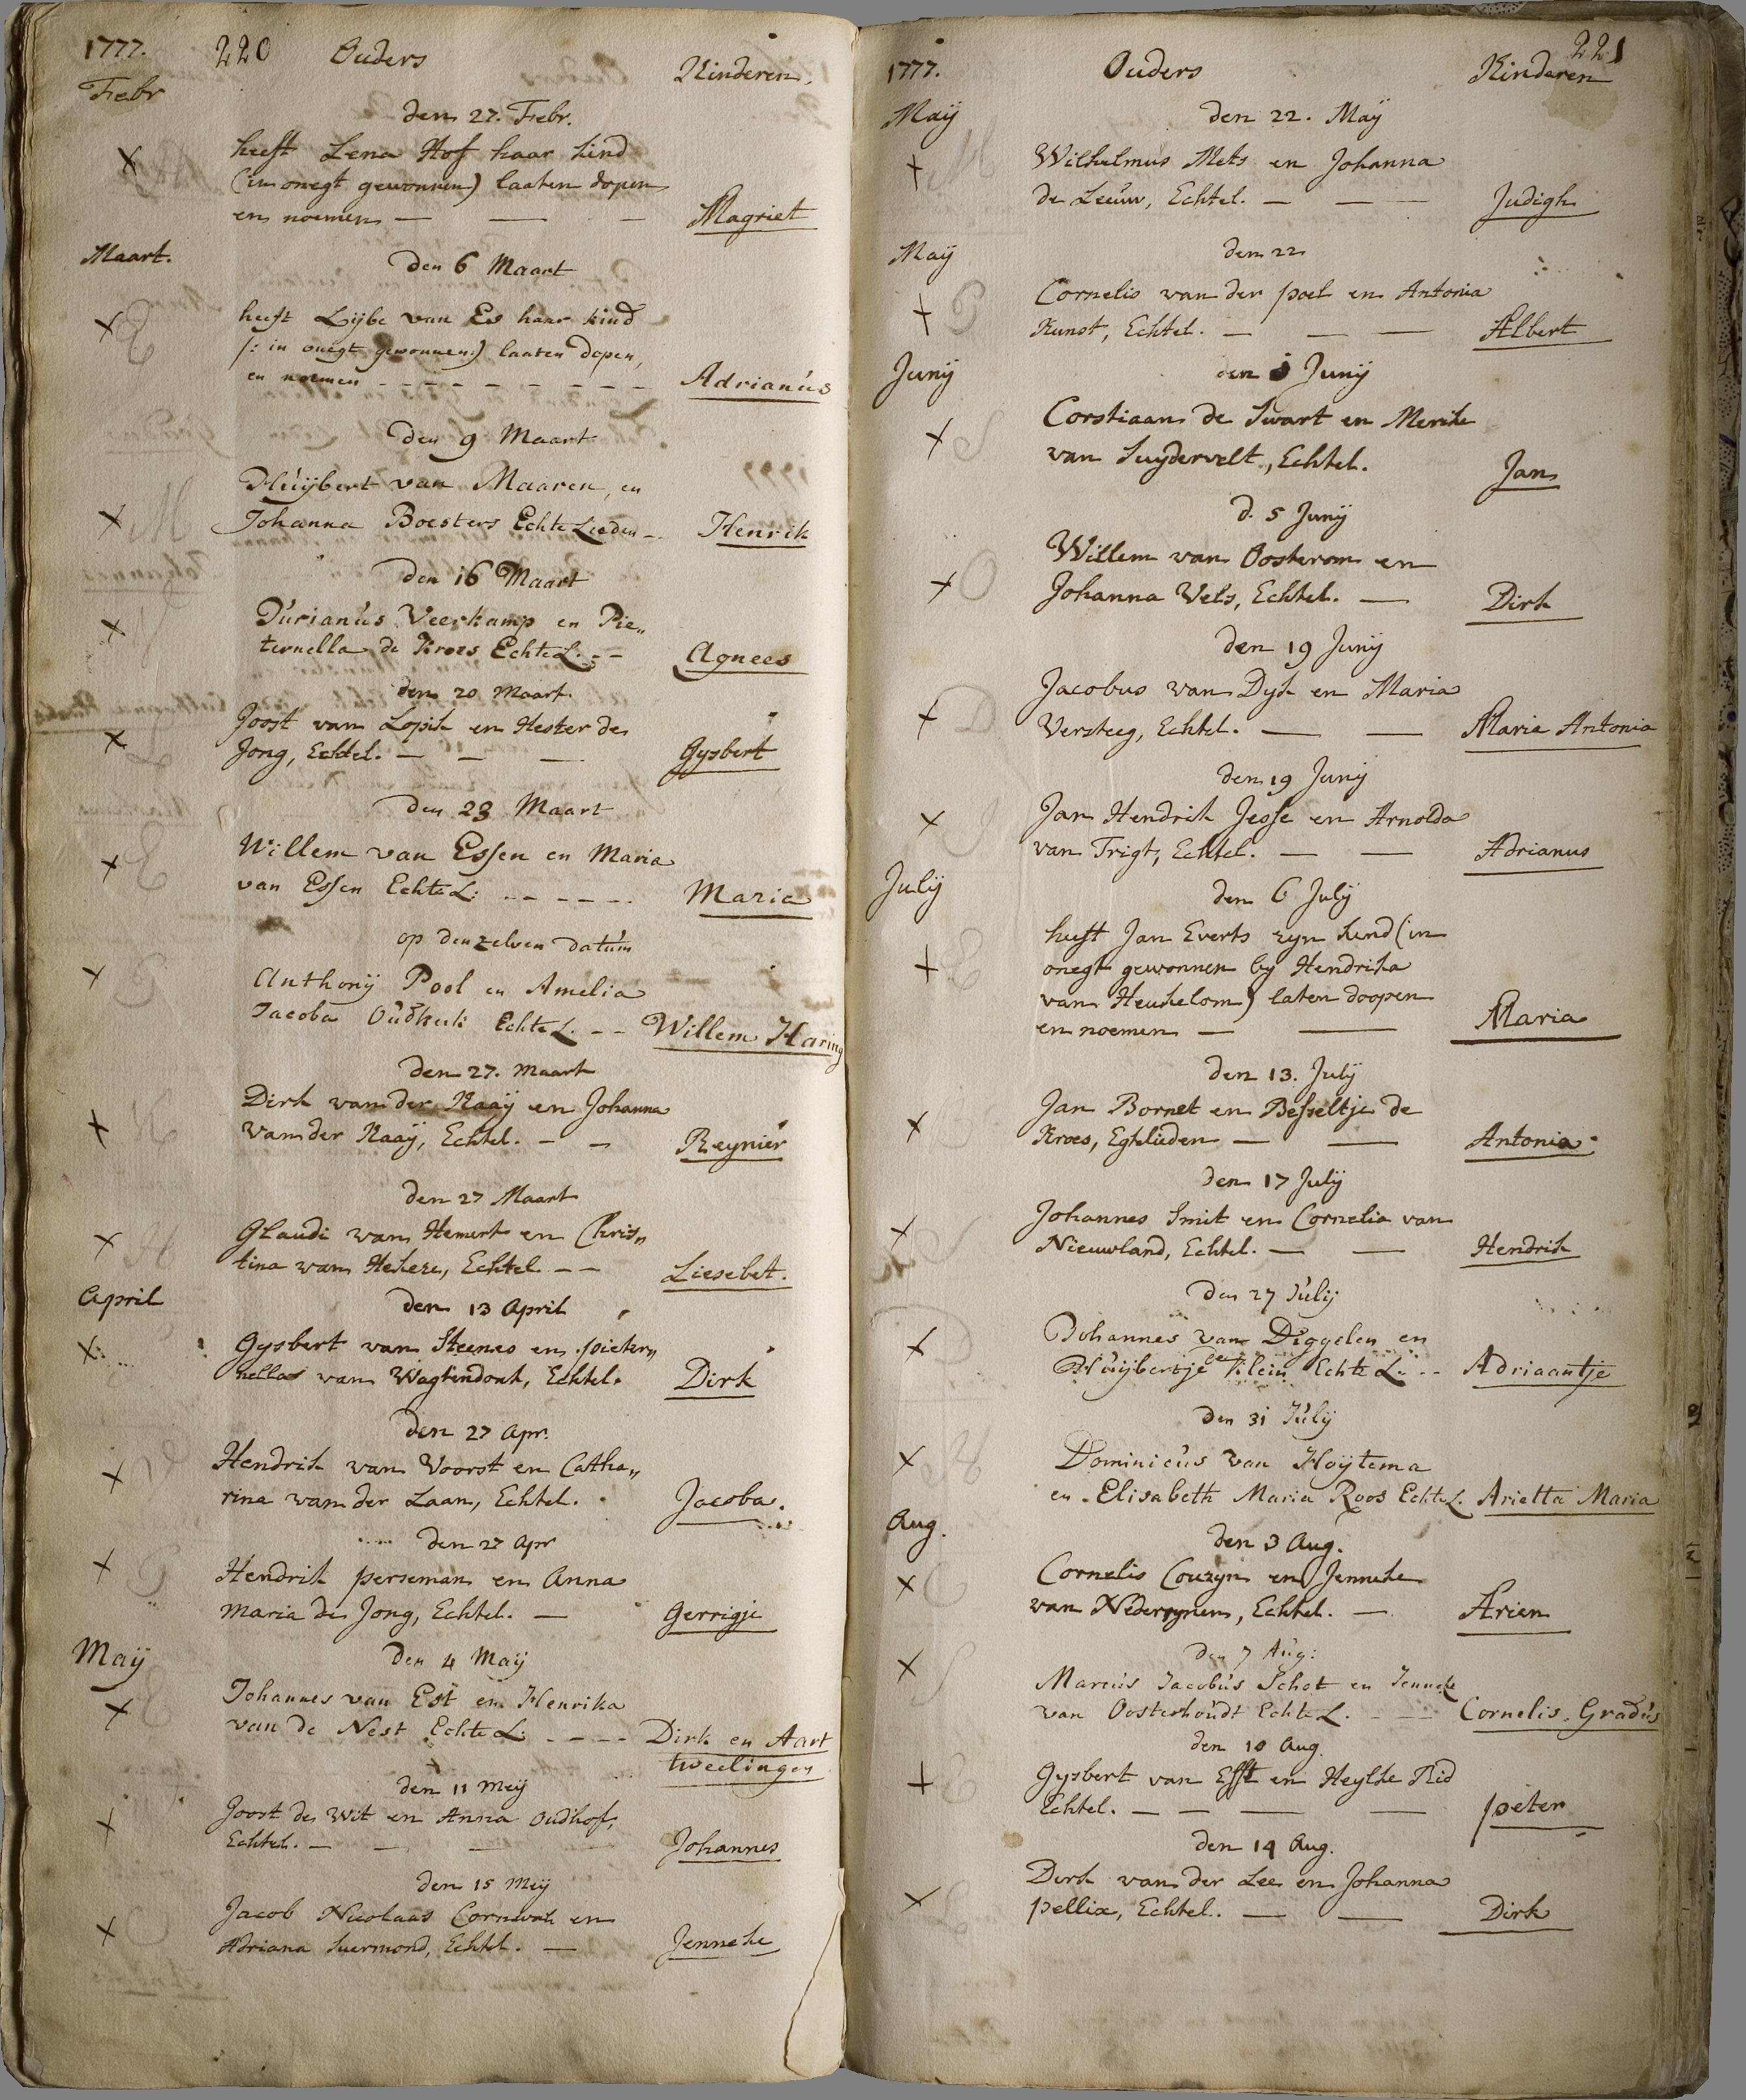 1777. 220 Ouders Kinderen.
Febr
den 27. Febr.
heeft Lena Hof haar kind
(in onegt gewonnen) laaten dopen
en noemen — — — Magriet
Maart.
Den 6 Maart
heeft Lijbe van Es haar kind
(: in onegt gewonnen:) laaten dopen,
en noemen - - - - - - - - Adrianus
Den 9 Maart
Huijbert van Maaren, en
Johanna Boesters EchteLieden - Henrik
Den 16 Maart
Durianus Veerkamp en Pie„
ternella de Kroes EchteL. - - Agnees
den 20 Maart.
Joost van Lopik en Hester de
Jong, Echtel. — — — Gysbert
Den 23 Maart
Willem van Essen en Maria
van Essen EchteL: - - - - - Maria
op denzelven Datum
Anthonij Pool en Amelia
Jacoba Oudkerk EchteL. - - Willem Haring
den 27. Maart
Dirk van der Kaaij en Johanna
van der Kaaij, Echtel. — — Reynier
den 27 Maart
Glaudi van Hemert en Chris„
tina van Hekeze, Echtel — — Liesebet.
April
den 13 April
Gysbert van Steenes en pieter„
nella van Wagtendonk, Echtel. Dirk
den 27 Apr.
Hendrik van Voorst en Catha„
rina van der Laan, Echtel. Jacoba.
den 27 Apr
Hendrik perseman en Anna
Maria de Jong, Echtel. — Gerrigje
Maij
Den 4 Maij
Johannes van Est en Henrika
van de Nest EchteL: - - - - Dirk en Aart
tweelingen
den 11 Meij
Joost de Wit en Anna Oudhof,
Echtel. — — — Johannes
den 15 Meij
Jacob Nicolaas Cornwal en
Adriana Suermond, Echtel. — Jenneke
221
1777. Ouders Kinderen
Maij
den 22. Maij
Wilhelmus Mets en Johanna
de Leeuw, Echtel. — — — Judigh
Maij
den 22
Cornelis van der poel en Antonia
Kunst, Echtel. — — — Albert
Junij
den Junij
Corstiaan de Swart en Merike
van Suydervelt, Echtel. Jan
d. 5 Junij
Willem van Oosterom en
Johanna Vels, Echtel. — Dirk
den 19 Junij
Jacobus van Dyk en Maria
Versteeg, Echtel. — — Maria Antonia
den 19 Junij
Jan Hendrik Jesse en Arnolda
van Trigt, Echtel. — — Adrianus
Julij
den 6 Julij
heeft Jan Everts zyn kind (in
onegt gewonnen by Hendrika
van Heukelom) laten doopen
en noemen — — Maria
den 13. Julij
Jan Bornet en Besseltje de
Kroes, Egtelieden — — Antonia.
den 17 Julij
Johannes Smit en Cornelia van
Nieuwland, Echtel. — — Hendrik
Den 27 Julij
Johannes van Diggelen en
Huijbertje de Klein EchteL. - - Adriaantje
Den 31 Julij
Dominicus van Hoijtema
en Elisabeth Maria Roos EchteL. Arietta Maria
Aug.
den 3 Aug.
Cornelis Couzyn en Jenneke
van Nederynen, Echtel. — Arien
Den 7 Aug:
Marcus Jacobus Schot en Jenneke
van Oosterhoudt EchteL. - - - Cornelis Gradus
den 10 Aug.
Gysbert van Efft en Heylke Kid
Echtel. — — — — peter
den 14 Aug.
Derk van der Lee en Johanna
pellix, Echtel. — — Dirk